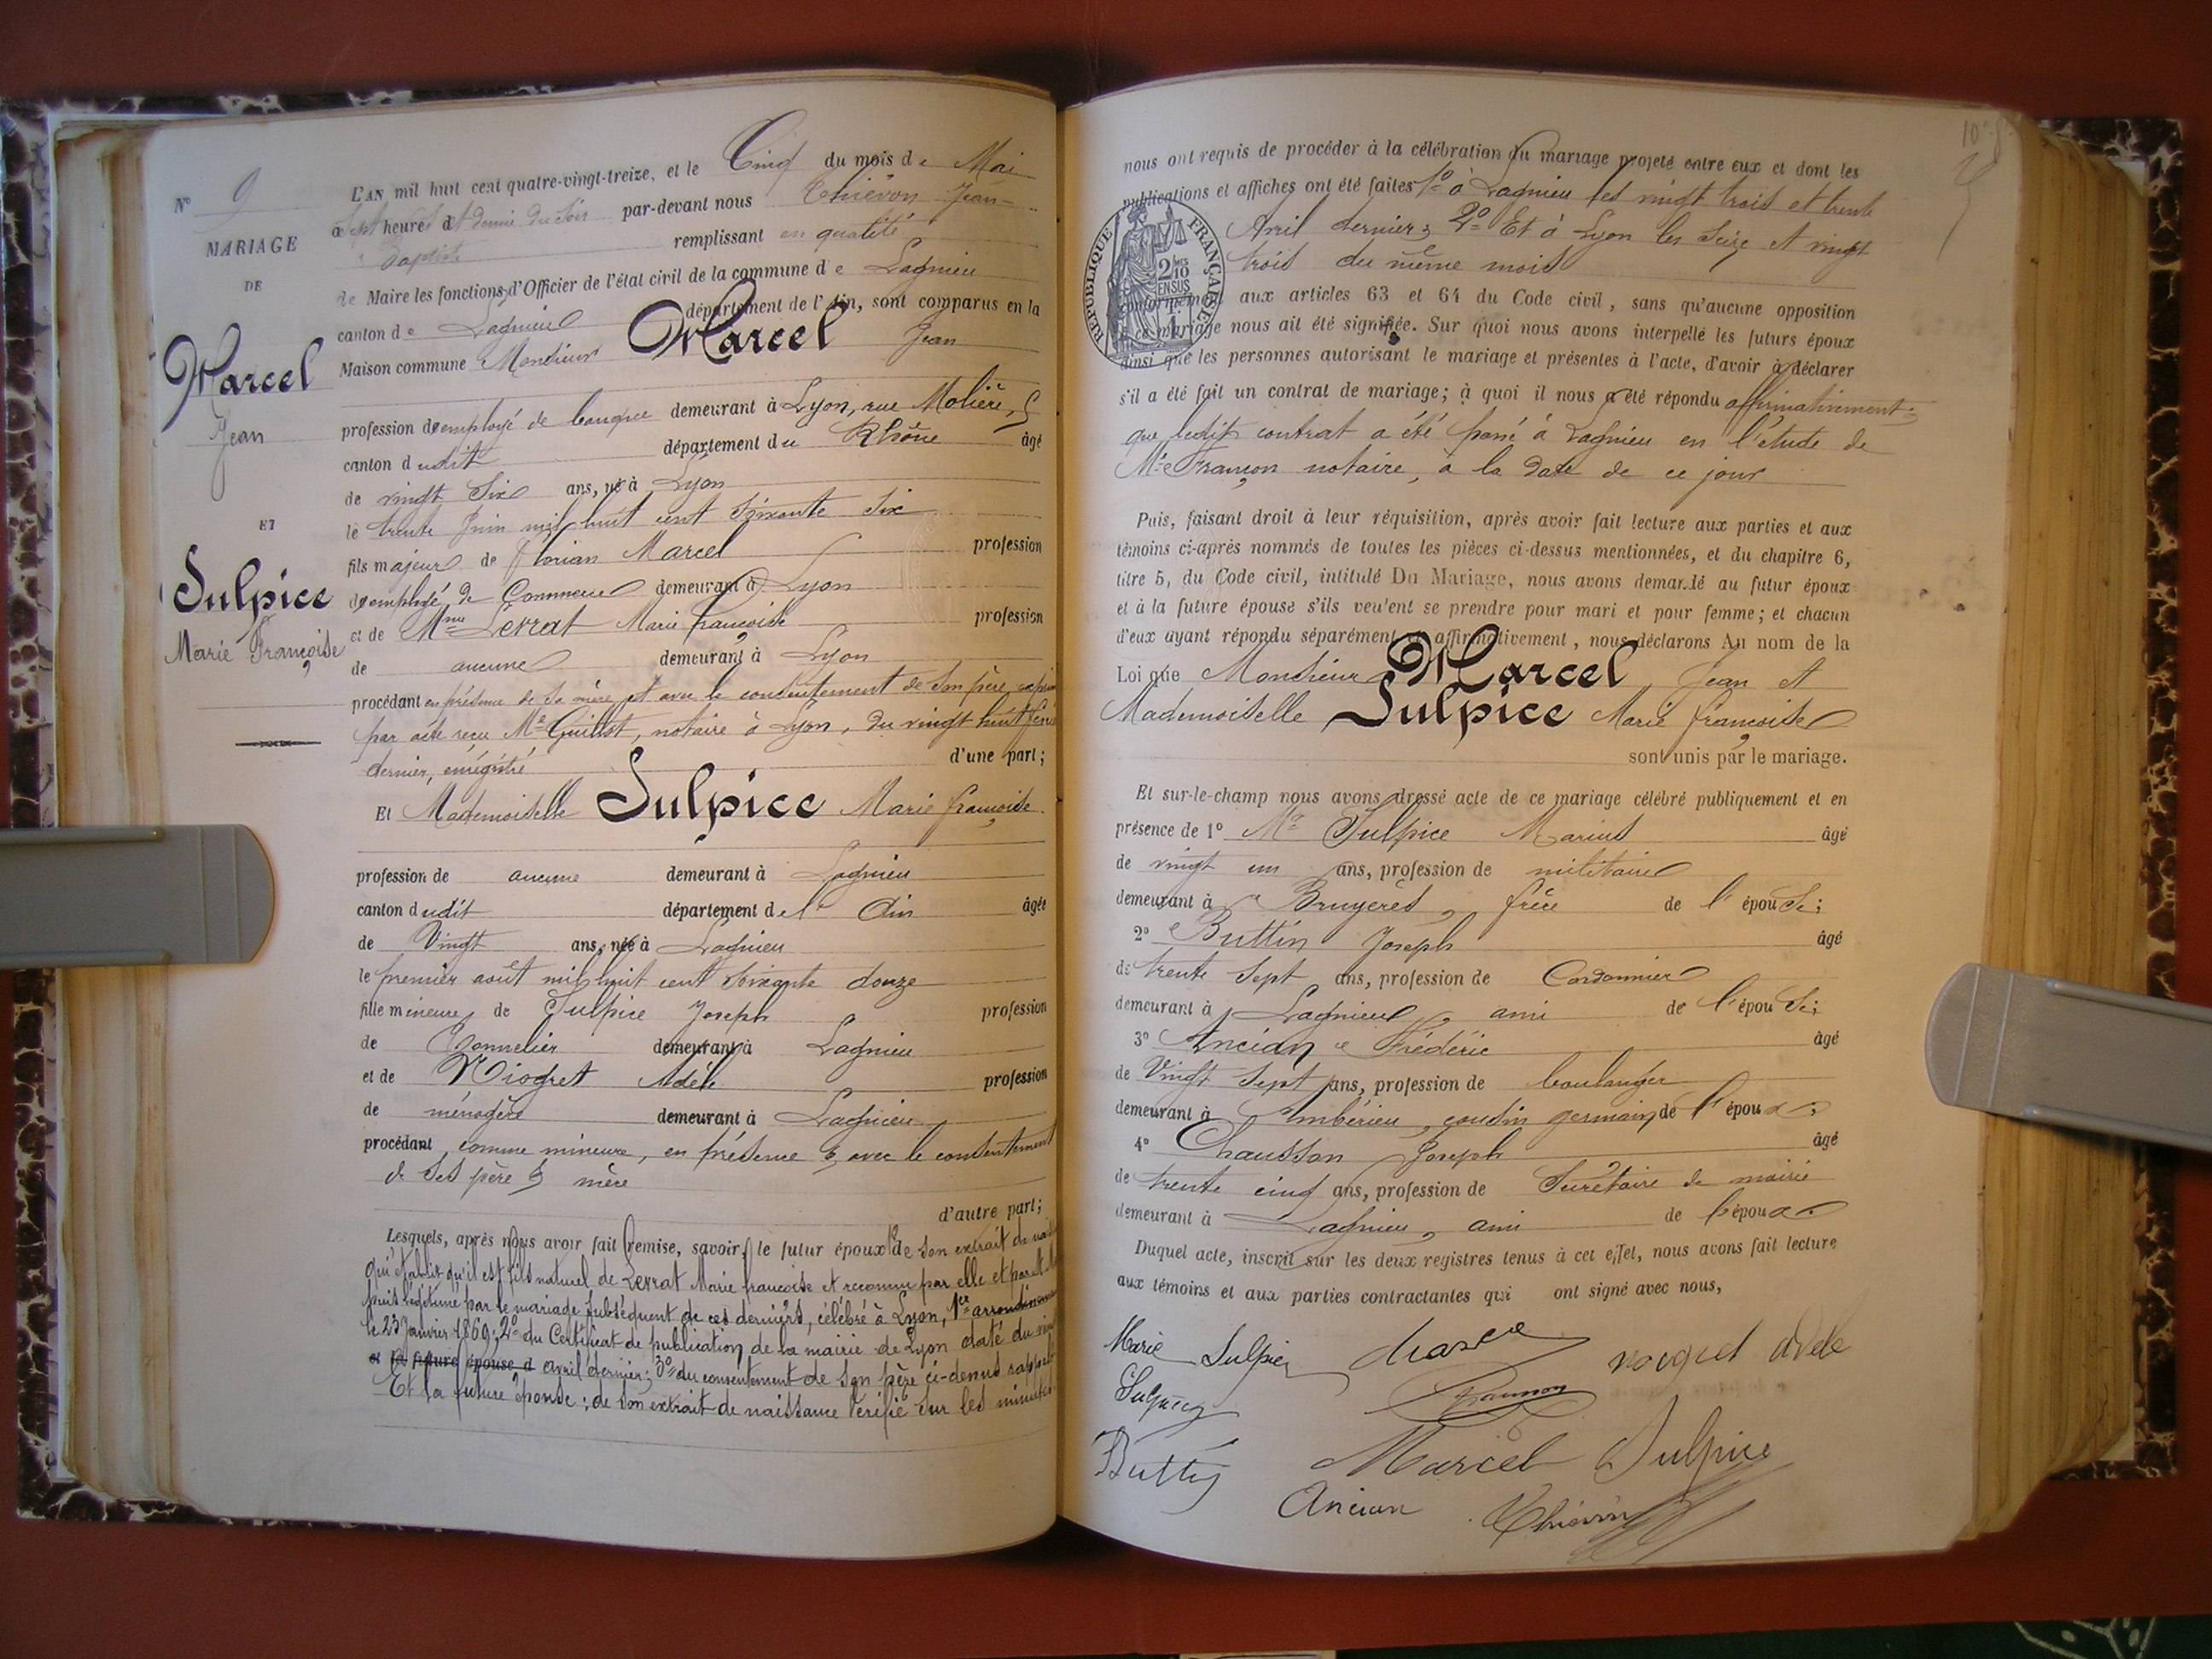 Nº 9
MARIAGE
DE
Marcel
Jean
ET
Sulpice
Marie Françoise
L'AN mil huit cent quatre-vingt-treize, et le Cinq du mois de Mai
à Sept heures et demie du Soir par-devant nous Thiévon Jean-
Baptiste remplissant en qualité
de Maire les fonctions d'Officier de l'état civil de la commune de Lagnieu
canton de Lagnieu département de l'Ain, sont comparus en la
Maison commune Monsieur Marcel Jean
profession d'employé de banque demeurant à Lyon, rue Molière, 5
canton dudit département du Rhône âgé
de vingt Six ans, né à Lyon
le trente Juin mil huit cent Soixante Six
fils majeur de Florian Marcel profession
d'employé de Commerce demeurant à Lyon
et de Mme Levrat Marie françoise profession
de aucune demeurant à Lyon
procédant en présence de Sa mère et avec le consentement de Son père,
par acte reçu Me Guillot, notaire à Lyon, du vingt huit
dernier, enrégistré d'une part;
Et Mademoiselle Sulpice Marie françoise
profession de aucune demeurant à Lagnieu
canton dudit département de l'Ain âgée
de Vingt ans, née à Lagnieu
le premier août mil huit cent Soixante douze
fille mineure de Sulpice Joseph profession
de Tonnelier demeurant à Lagnieu
et de Viogret Adèle profession
de ménagère demeurant à Lagnieu
procédant comme mineure, en présence & avec le consentement
de Ses père & mère
d'autre part;
Lesquels, après nous avoir fait remise, savoir: le futur époux 1º de Son extrait de
qui établit qu'il est fils naturel de Levrat Marie françoise et reconnu par elle et par
puis légitimé par le mariage Subséquent de ces derniers, célébré à Lyon, 1er arrondissement
le 23 Janvier 1869; 2º du Certificat de publication de la mairie de Lyon daté du
et la future épouse d avril dernier; 3º du consentement de Son père ci-dessus
Et la future épouse: de Son extrait de naissance Vérifié Sur les minutes
10
nous ont requis de procéder à la célébration du mariage projeté entre eux et dont les
publications et affiches ont été faites 1º à Lagnieu les vingt trois et trente
Avril dernier; 2º Et à Lyon les Seize et vingt
trois du même mois
RÉPUBLIQUE FRANÇAISE
2/10 EN SUS
conformément aux articles 63 et 64 du Code civil, sans qu'aucune opposition
à ce mariage nous ait été signifiée. Sur quoi nous avons interpellé les futurs époux
ainsi que les personnes autorisant le mariage et présentes à l'acte, d'avoir à déclarer
s'il a été fait un contrat de mariage; à quoi il nous a été répondu affirmativement;
que ledit contrat a été passé à Lagnieu en l'étude de
Me Françon notaire, à la date de ce jour
Puis, faisant droit à leur réquisition, après avoir fait lecture aux parties et aux
témoins ci-après nommés de toutes les pièces ci-dessus mentionnées, et du chapitre 6,
titre 5, du Code civil, intitulé Du Mariage, nous avons demandé au futur époux
et à la future épouse s'ils veulent se prendre pour mari et pour femme; et chacun
d'eux ayant répondu séparément et affirmativement, nous déclarons Au nom de la
Loi que Monsieur Marcel Jean et
Mademoiselle Sulpice Marie françoise
sont unis par le mariage.
Et sur-le-champ nous avons dressé acte de ce mariage célébré publiquement et en
présence de 1º Mr Sulpice Marius âgé
de vingt un ans, profession de militaire
demeurant à Bruyères, frère de l'épouse;
2º Buttin Joseph âgé
de trente Sept ans, profession de Cordonnier
demeurant à Lagnieu, ami de l'épouse;
3º Ancian Frédéric âgé
de Vingt Sept ans, profession de boulanger
demeurant à Ambérieu, cousin germain de l'époux;
4º Chausson Joseph âgé
de trente cinq ans, profession de Secrétaire de mairie
demeurant à Lagnieu, ami de l'époux.
Duquel acte, inscrit sur les deux registres tenus à cet effet, nous avons fait lecture
aux témoins et aux parties contractantes qui ont signé avec nous,
Marie Sulpice
Buttin
Marcel Sulpice
Ancian